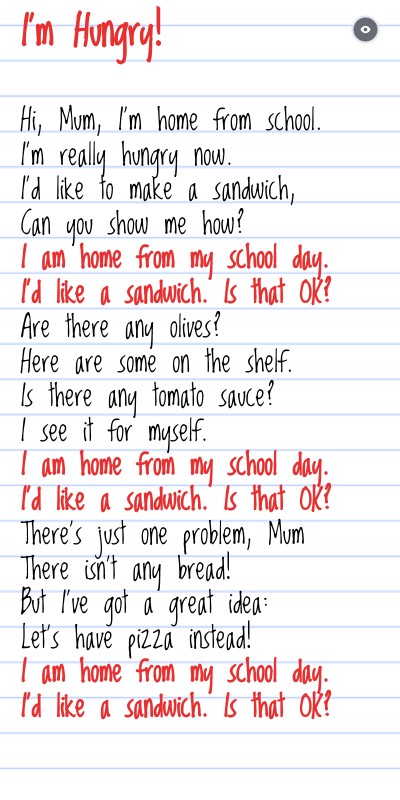 I'm Hungry!
Hi, Mum, I'm home from school.
I'm really hungry now.
I'd like to make a sandwich,
Can you show me how?
I am home from my school day.
I'd like a sandwich. Is that OK?
Are there any olives?
Here are some on the shelf.
Is there any tomato sauce?
I see it for myself.
I am home from my school day.
I'd like a sandwich. Is that OK?
There's just one problem, Mum
There isn't any bread!
But I've got a great idea:
Let's have pizza instead!
I am home from my school day.
I'd like a sandwich. Is that OK?